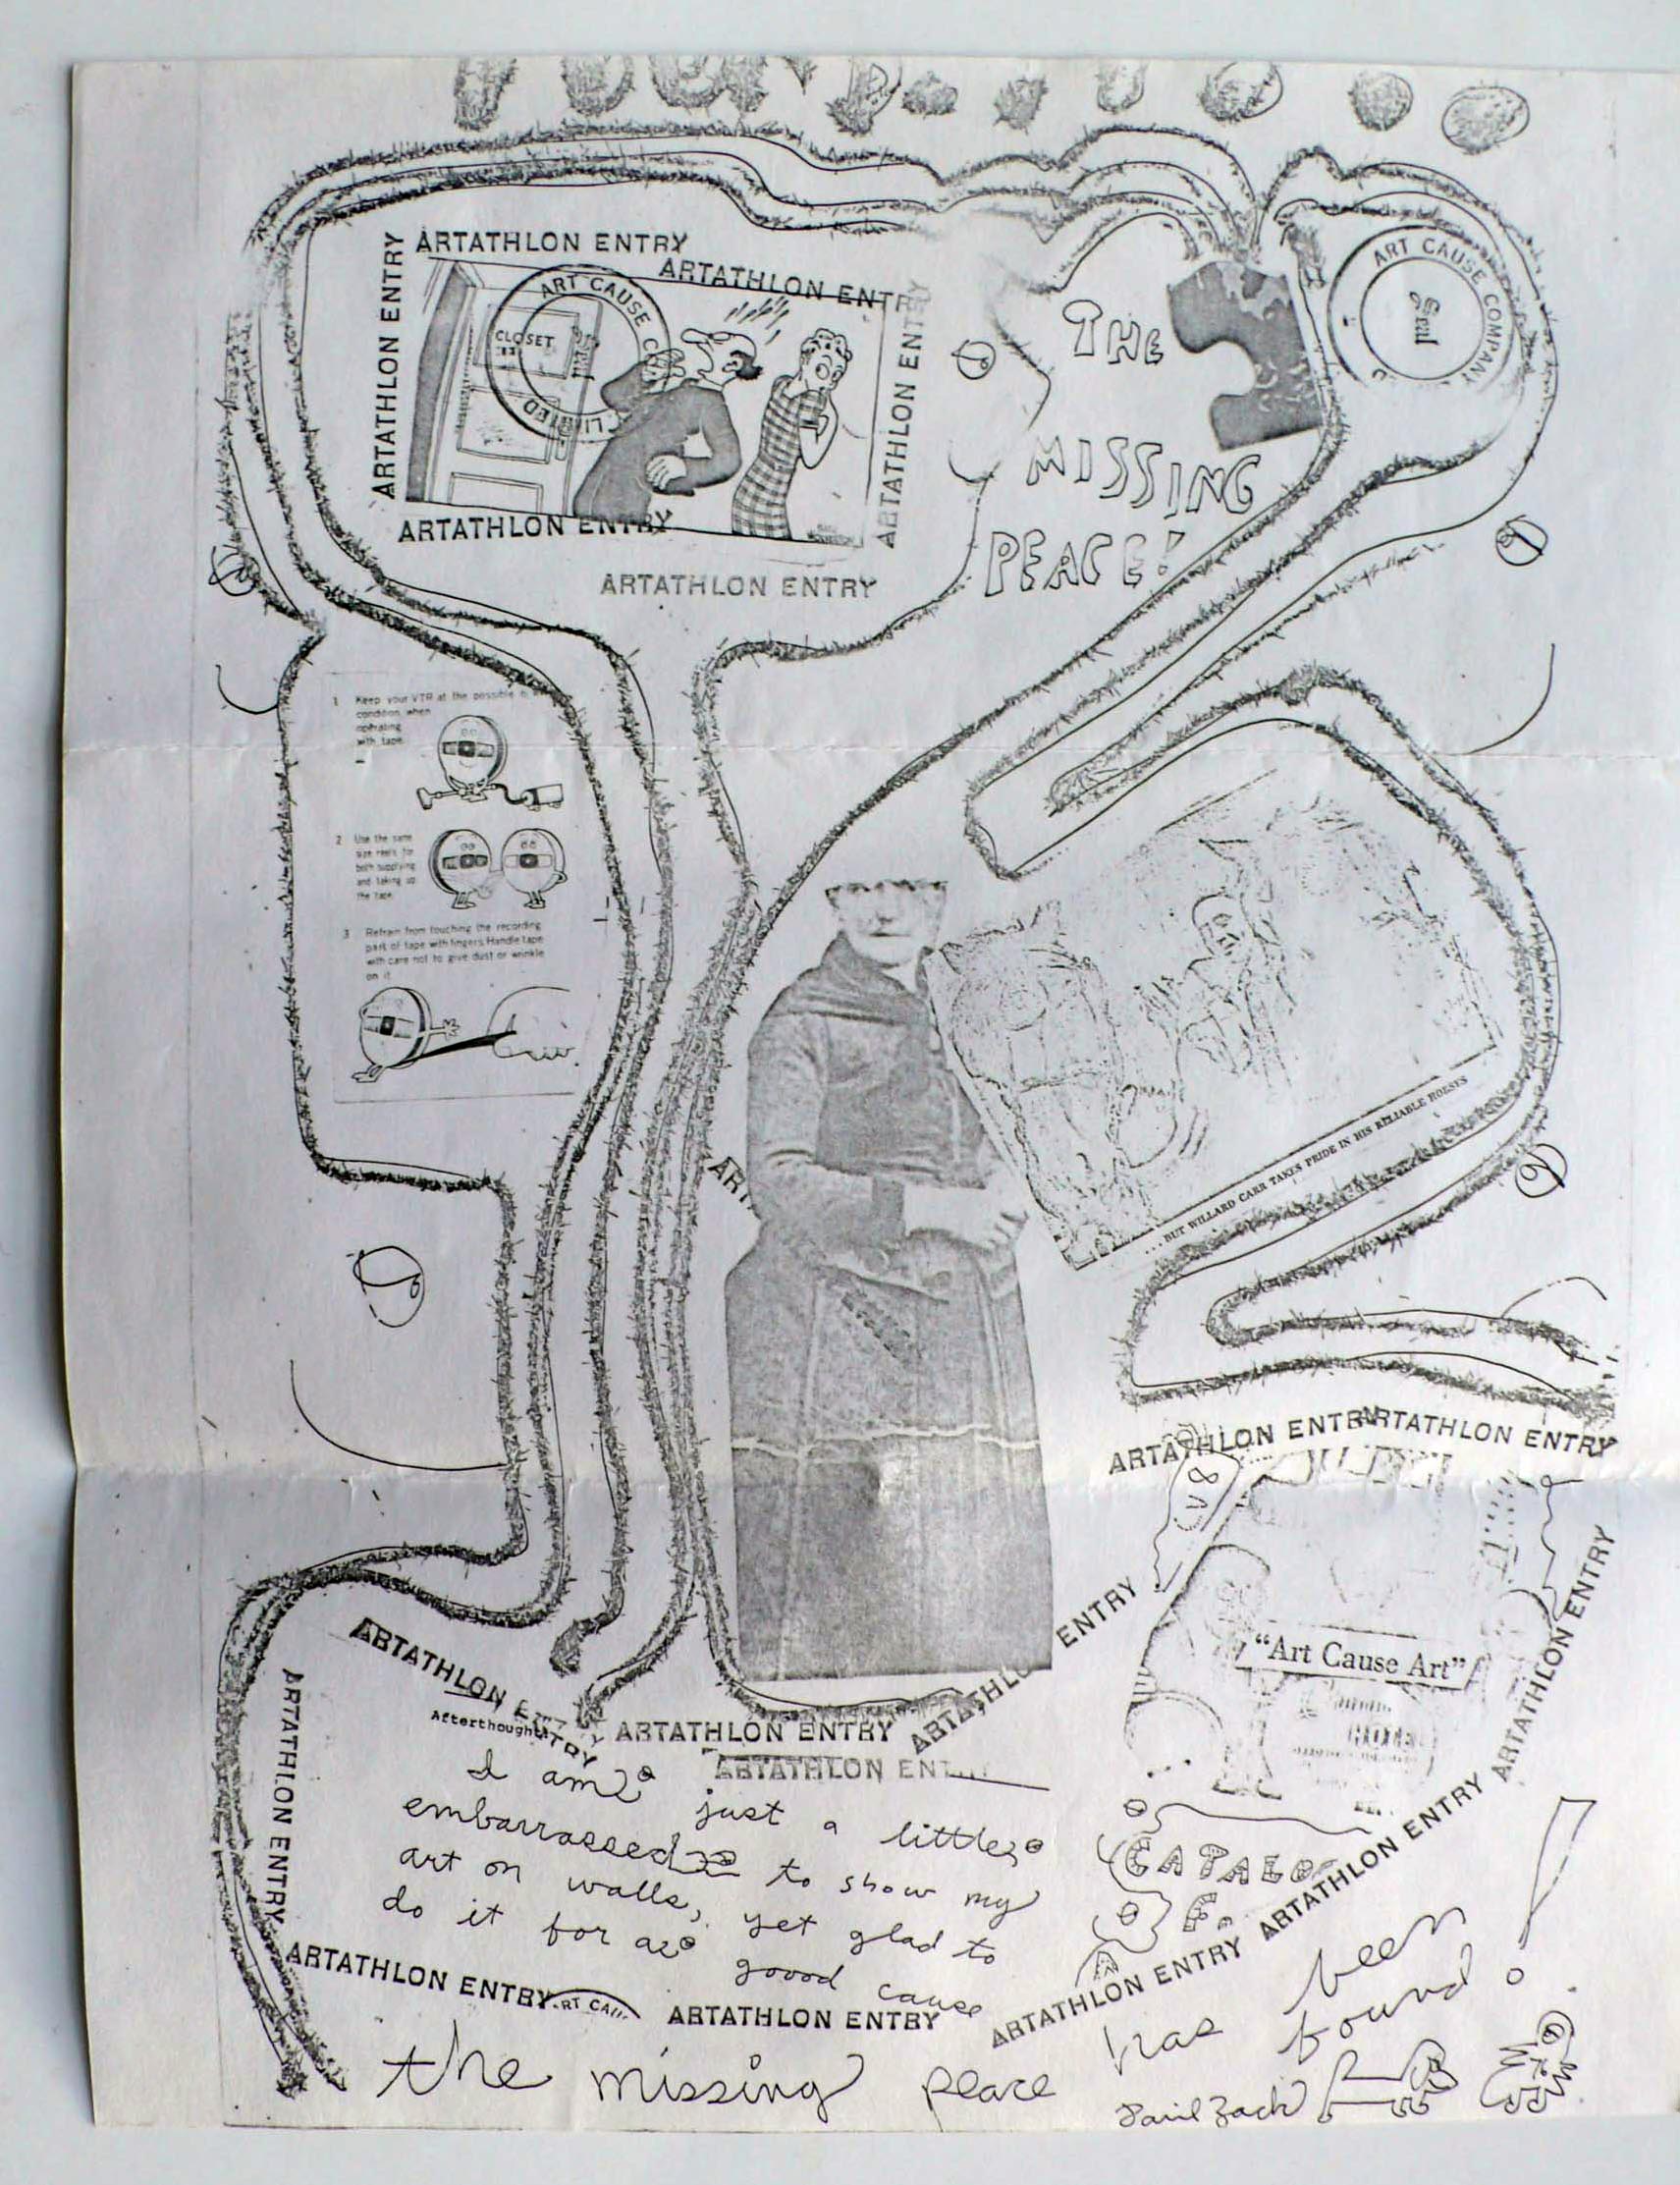 ARTATHLON ENTRY
ARTATHLON ENTRY
ARTATHLON ENTRY
ARTATHLON ENTRY
ART CAUSE
LIMITED
Seal
CLOSET
ARTATHLON ENTRY
ARTATHLON ENTRY
THE
MISSING
PEACE!
ART CAUSE COMPANY
Seal
1 Keep your VTR at the possible
condition when
operating
with tape.
2 Use the same
size reels for
both supplying
and taking up
the tape.
3 Refrain from touching the recording
part of tape with fingers. Handle tape
with care not to give dust or wrinkle
on it
ART
...BUT WILLARD CARR TAKES PRIDE IN HIS RELIABLE HOESYS
ARTATHLON ENTRY
ARTATHLON ENTRY
"Art Cause Art"
ARTATHLON ENTRY
ARTATHLON ENTRY
ARTATHLON ENTRY
ARTATHLON ENTRY
Afterthought
ARTATHLON ENTRY
ARTATHLON ENTRY
ARTATHLON ENTRY
I am just a little
embarrassed to show my
art on walls, yet glad to
do it for a goood cause
ARTATHLON ENTRY
ART CAU
ARTATHLON ENTRY
ARTATHLON ENTRY
ARTATHLON ENTRY
the missing peace has been found!